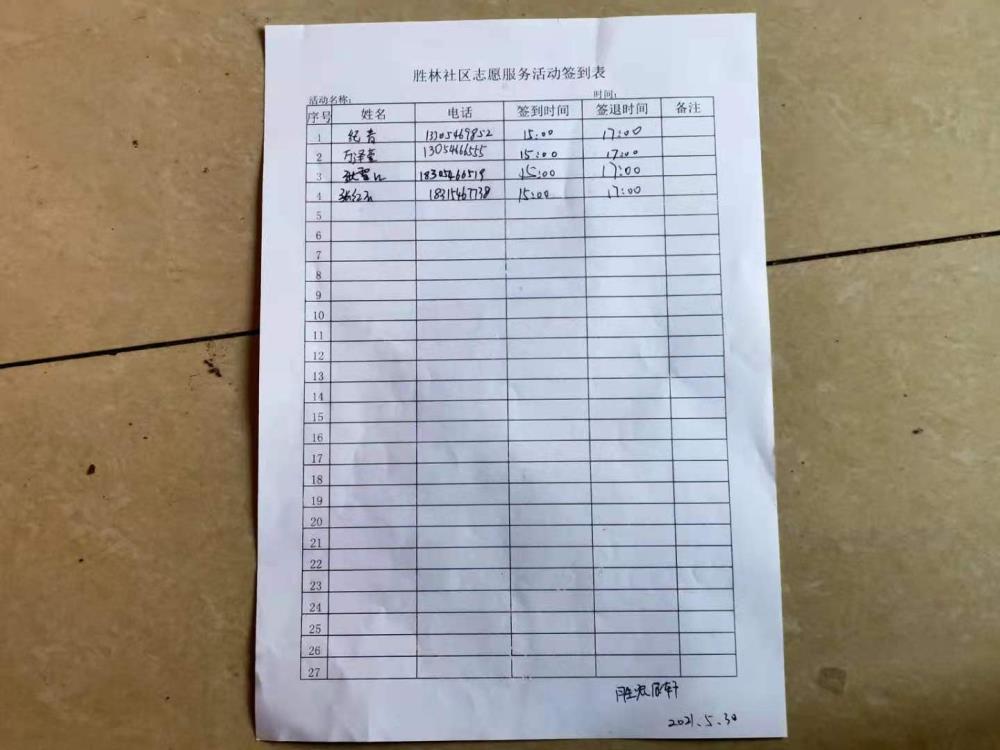 胜林社区志愿服务活动签到表
活动名称： 时间：
序号 姓名 电话 签到时间 签退时间 备注
1 纪青 13305469852 15:00 17:00
2 13054666555 15:00 17:00
3 18305466519 15:00 17:00
4 张红 18315467738 15:00 17:00
5
6
7
8
9
10
11
12
13
14
15
16
17
18
19
20
21
22
23
24
25
26
27
2021.5.30